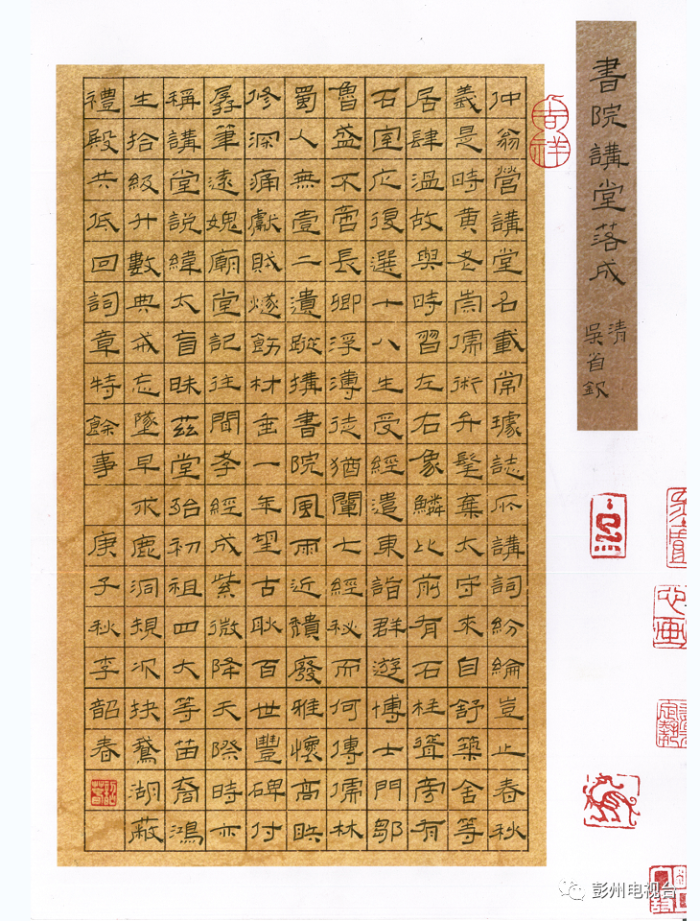 書院講堂落成
清
吳省欽
吉祥
仲翁營講堂名載常璩誌所講詞紛綸豈止春秋
義是時黃老崇儒術弁髦棄太守來自舒築舍等
居肆溫故與時習左右象鱗比前有石柱聳旁有
石室復選十八生受經遣東詣群遊博士門鄒
魯盛不啻長卿浮薄徒猶闡七經秘而何傳儒林
蜀人無壹二遺蹤搆書院風雨近穨廢雅懷高眹
修深痛獻賊燬飭材垂一年望古耿百世豐碑付
孱筆遠媿廟堂記往聞孝經成紫微降天際時亦
稱講堂說緯太盲昧茲堂殆初祖四大等苗裔鴻
生拾級升數典戒忘墜早求鹿洞規次抉鵞湖蔽
禮殿共低回詞章特餘事 庚子秋李韶春
彭州电视台